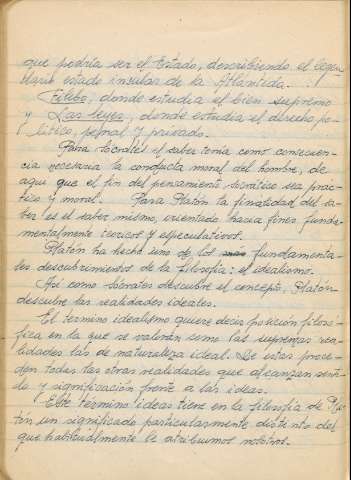 que podría ser el Estado, describiendo el legen-
dario estado insular de la Atlántida.
Filebo, donde estudia el bien supremo
y Las leyes, donde estudia el derecho po-
lítico, penal y privado.
Para Sócrates el saber tenía como consecuen-
cia necesaria la conducta moral del hombre, de
aquí que el fin del pensamiento socrático sea prác-
tico y moral. Para Platón la finalidad del sa-
ber es el saber mismo, orientado hacia fines funda-
mentalmente teóricos y especulativos.
Platón ha hecho uno de los fundamenta-
les descubrimientos de la filosofía: el idealismo.
Así como Sócrates descubre el concepto, Platón
descubre las realidades ideales.
El término idealismo quiere decir posición filosó-
fica en la que se valoran como las supremas rea-
lidades las de naturaleza ideal. De estas proce-
den todas las otras realidades que alcanzan senti-
do y significación frente a las ideas.
Este término ideas tiene en la filosofía de Pla-
tón un significado particularmente distinto del
que habitualmente le atribuimos nosotros.